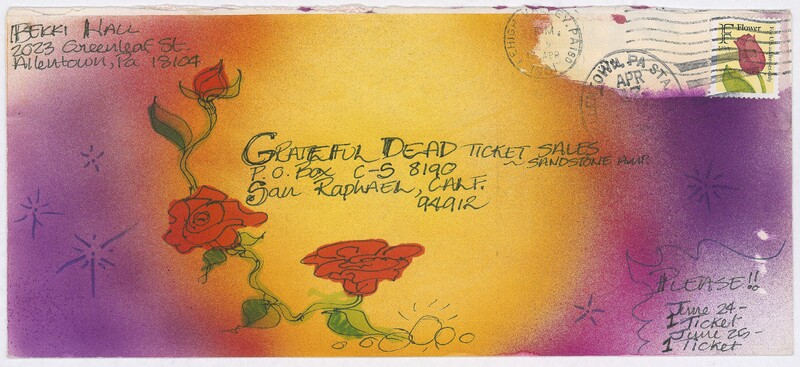 BEKKI HALL
2023 Greenleaf St.
Allentown, Pa 18104
LEHIGH VALLEY, PA 180
APR
F Flower
ALLENTOWN, PA STA
APR
GRATEFUL DEAD TICKET SALES
P.O. BOX C-S 8190 ~ SANDSTONE AMP.
San RAPHAEL, CALF.
94912
PLEASE!!
June 24-
1 Ticket
June 25-
1 Ticket